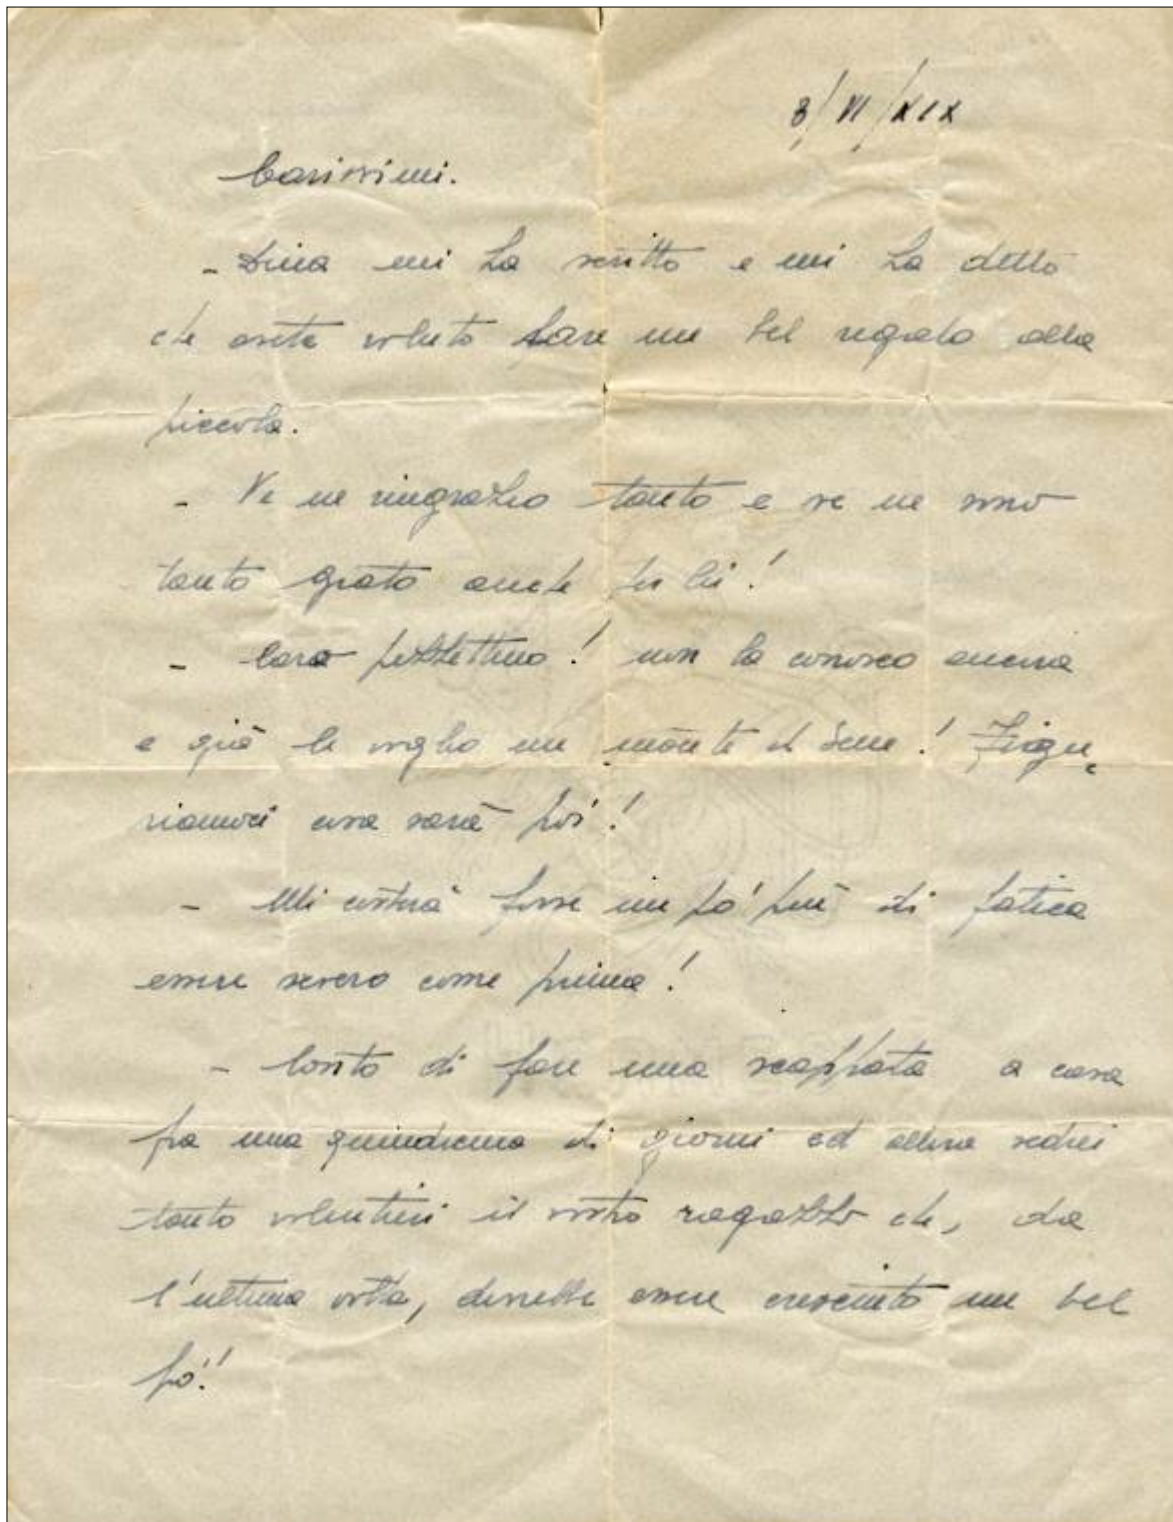 8/VI/XIX
Carissimi.
- Dina mi ha scritto e mi ha detto
che avete voluto fare un bel regalo alla
piccola.
- Ve ne ringrazio tanto e ve ne sono
tanto grato anche per lei!
- Caro pezzettino! non la conosco ancora
e già le voglio un monte di bene! Figu,
riamoci cosa sarà poi!
- Mi costerà forse un pò' più di fatica
essere severo come prima!
- Conto di fare una scappata a casa
fra una quindicina di giorni ed allora vedrei
tanto volentieri il vostro ragazzo che, da
l'ultima volta, dovrebbe essere cresciuto un bel
pò'!